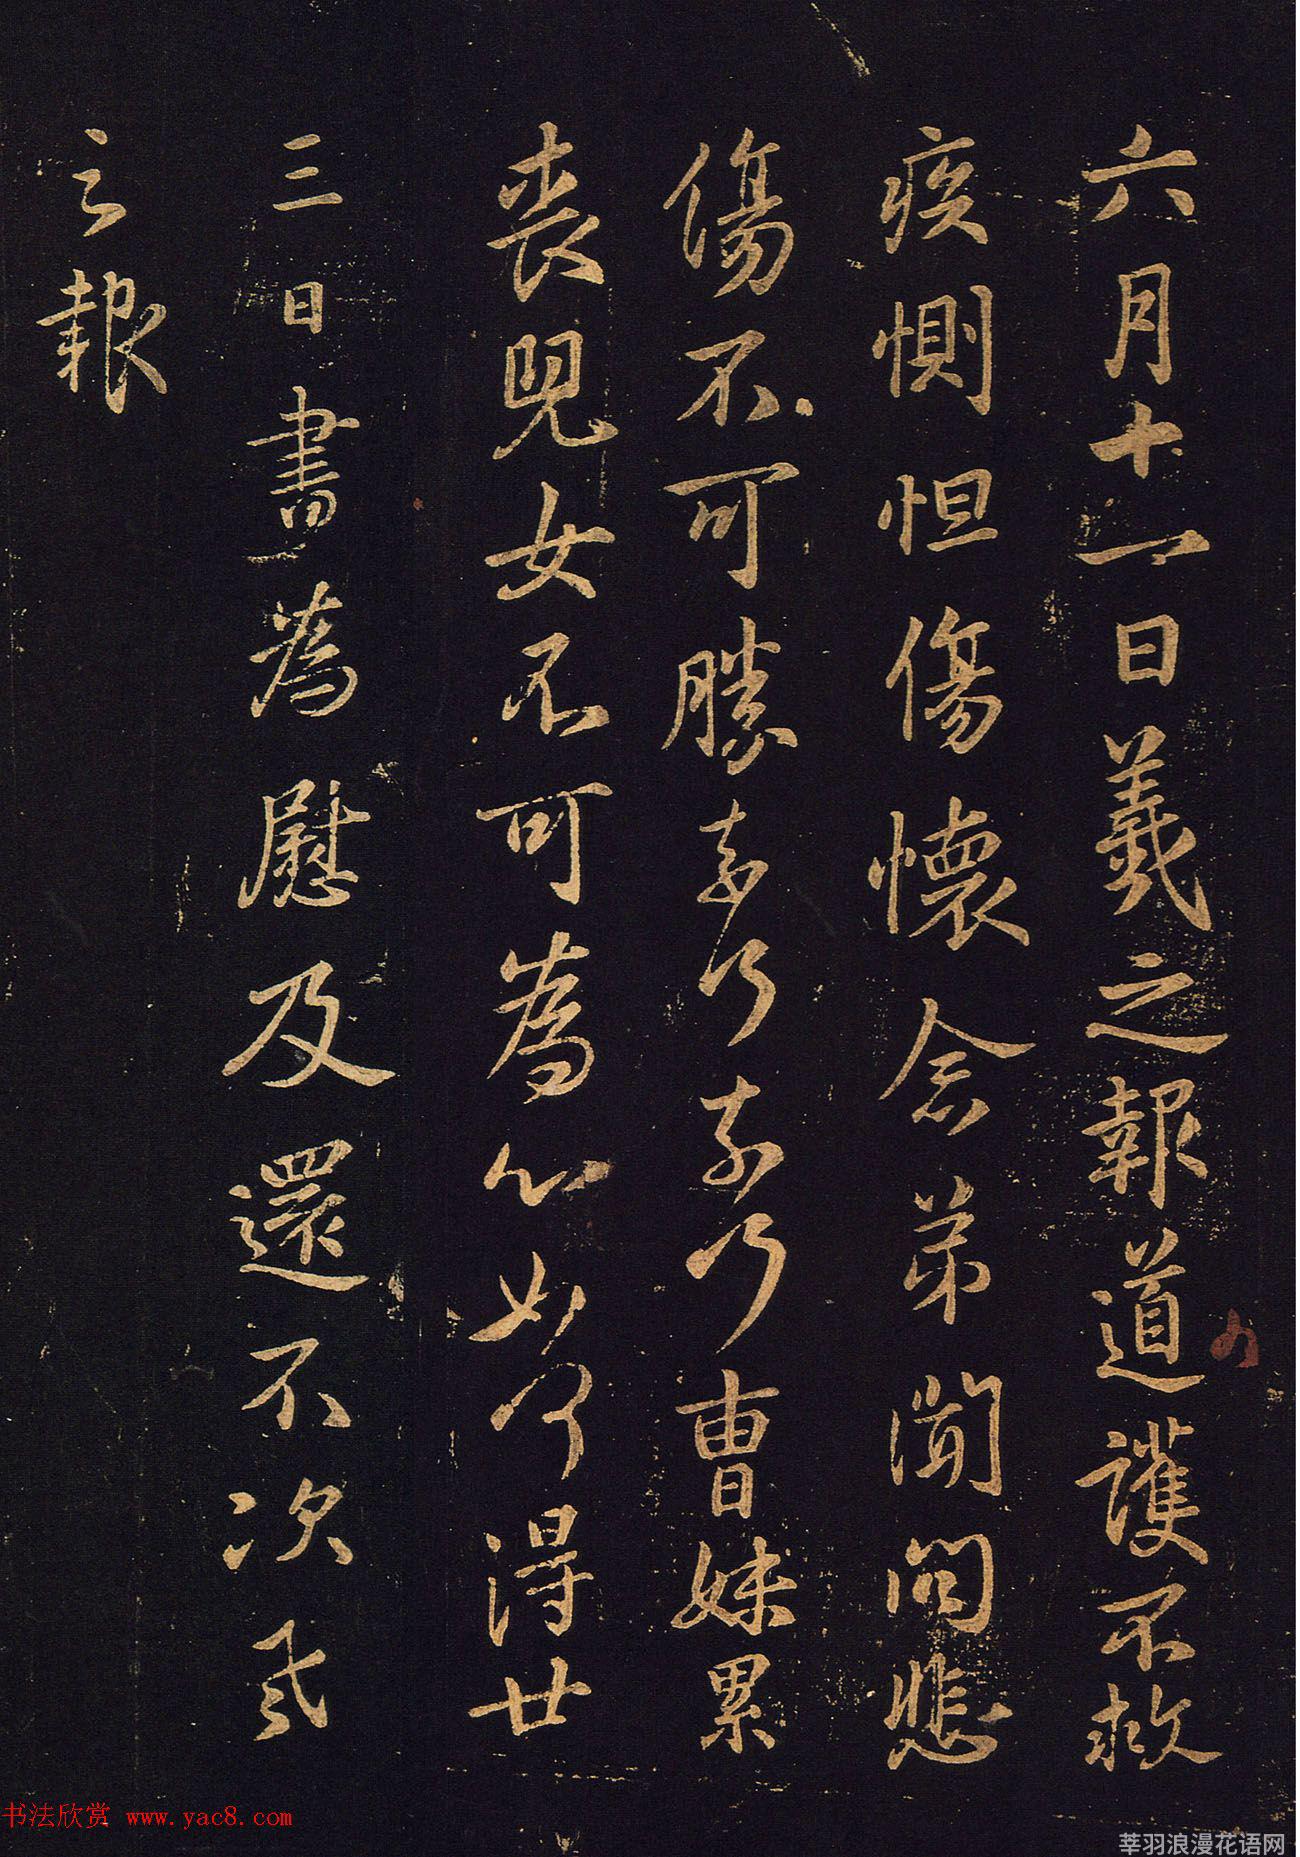 六月十一日羲之報道護不救
疾惻怛傷懷念弟聞問悲
傷不可勝奈何奈何曹妹累
喪兒女不可為心如何得廿
三日書為慰及還不次羲
之報
书法欣赏 www.yac8.com
莘羽浪漫花语网